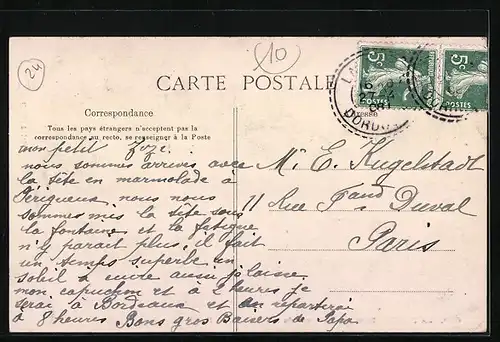 24
10
CARTE POSTALE
5c
5c
DORDOGNE
Correspondance
Adresse
Tous les pays étrangers n'acceptent pas la
correspondance au recto, se renseigner à la Poste
mon petit
nous sommes arrives avec
la tête en marmelade à
Périgueux nous nous
sommes mis la tête sous
la fontaine et la fatigue
n'y parait plus, il fait
un temps superbe un
soleil a cuire aussi je laisse
mon capuchon et à 2 heures je
serai à Bordeaux et on repartirai
à 8 heures Bons gros Baisers de Papa
M. E. Kugelstadt
11 Rue Ferdd Duval
Paris